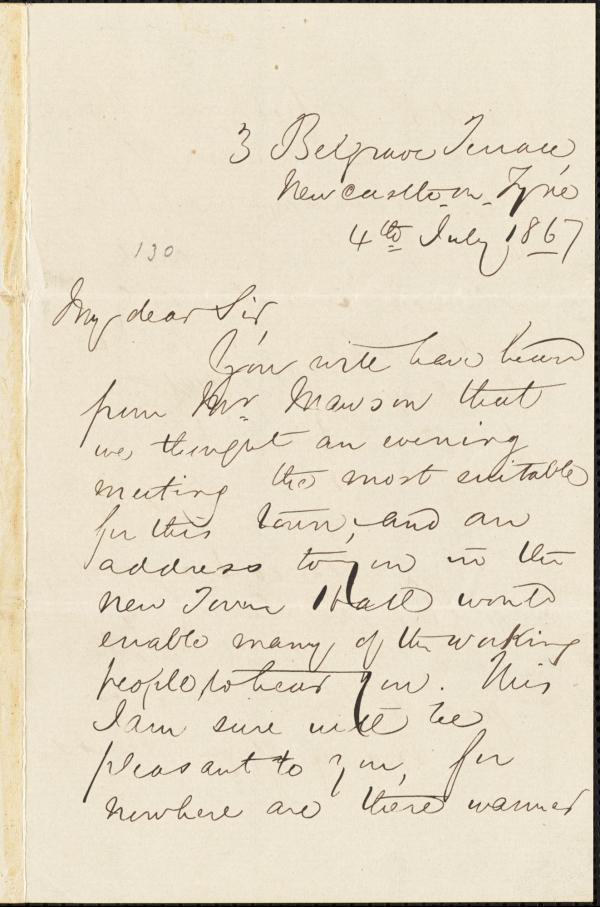 3 Belgrave Terrace,
Newcastle-on-Tyne
4th July, 1867
130
My dear Sir,
You will have heard
from Mr Mawson that
we thought an evening
meeting the most suitable
for this town, and an
address to you in the
new Town Hall would
enable many of the working
people to hear you. This
I am sure will be
pleasant to you, for
nowhere are there warmer